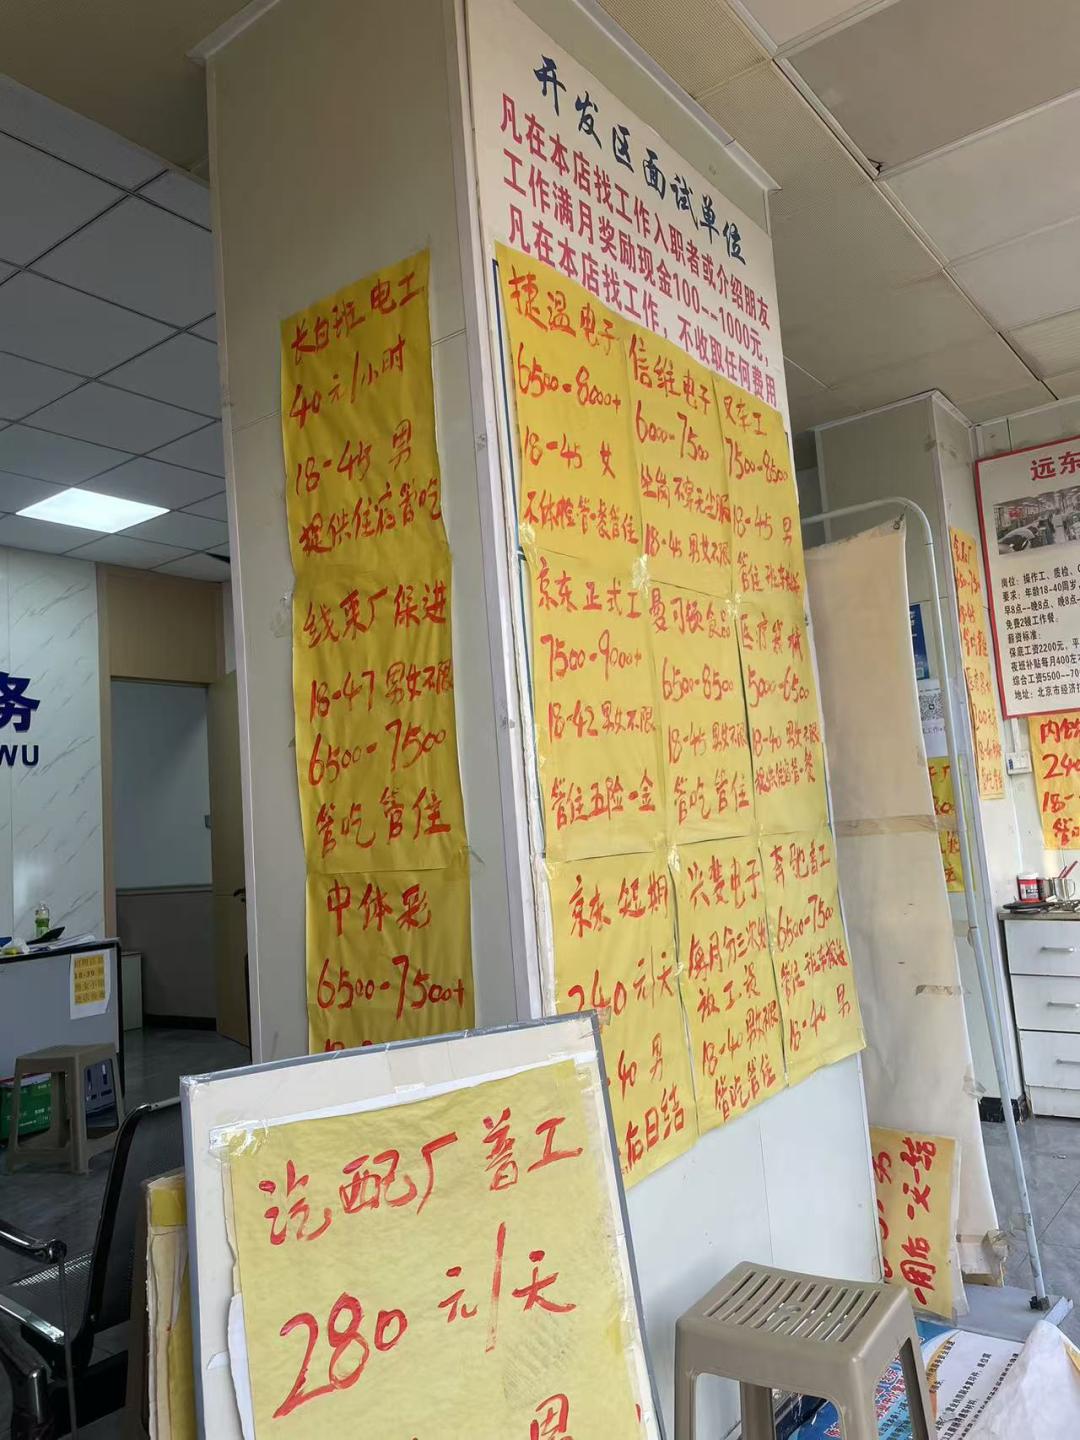 开发区面试单位
凡在本店找工作入职者或介绍朋友
工作满月奖励现金100--1000元，
凡在本店找工作，不收取任何费用
长白班 电工
40元/小时
18-45 男
提供住宿管吃
线束厂保进
18-47 男女不限
6500-7500
管吃 管住
中体彩
6500-7500+
捷温电子
6500-8000+
18-45 女
不体检管一餐管住
信维电子
6000-7500
坐岗 不穿无尘服
18-45 男女不限
叉车工
7500-8500
18-45 男
管住 班车接送
京东正式工
7500-9000+
18-42 男女不限
管住五险一金
曼可顿食品
6500-8500
18-45 男女不限
管吃 管住
医疗器械
5000-6500
18-40 男女不限
提供住宿管一餐
京东 短期
240元/天
40 男
日结
兴菱电子
每月分三次发
放工资
18-40 男女不限
管吃管住
奔驰普工
6500-7500
管住 班车接送
18-40 男
汽配厂 普工
280元/天
男
务
WU
远东
岗位：操作工、质检、
要求：年龄18-40周岁
早8点--晚8点、晚8点
免费2顿工作餐；
薪资标准：
保底工资2200元，平
夜班补贴每月400左
综合工资5500--70
地址：北京市经济
240
18-
一周后 一天一结